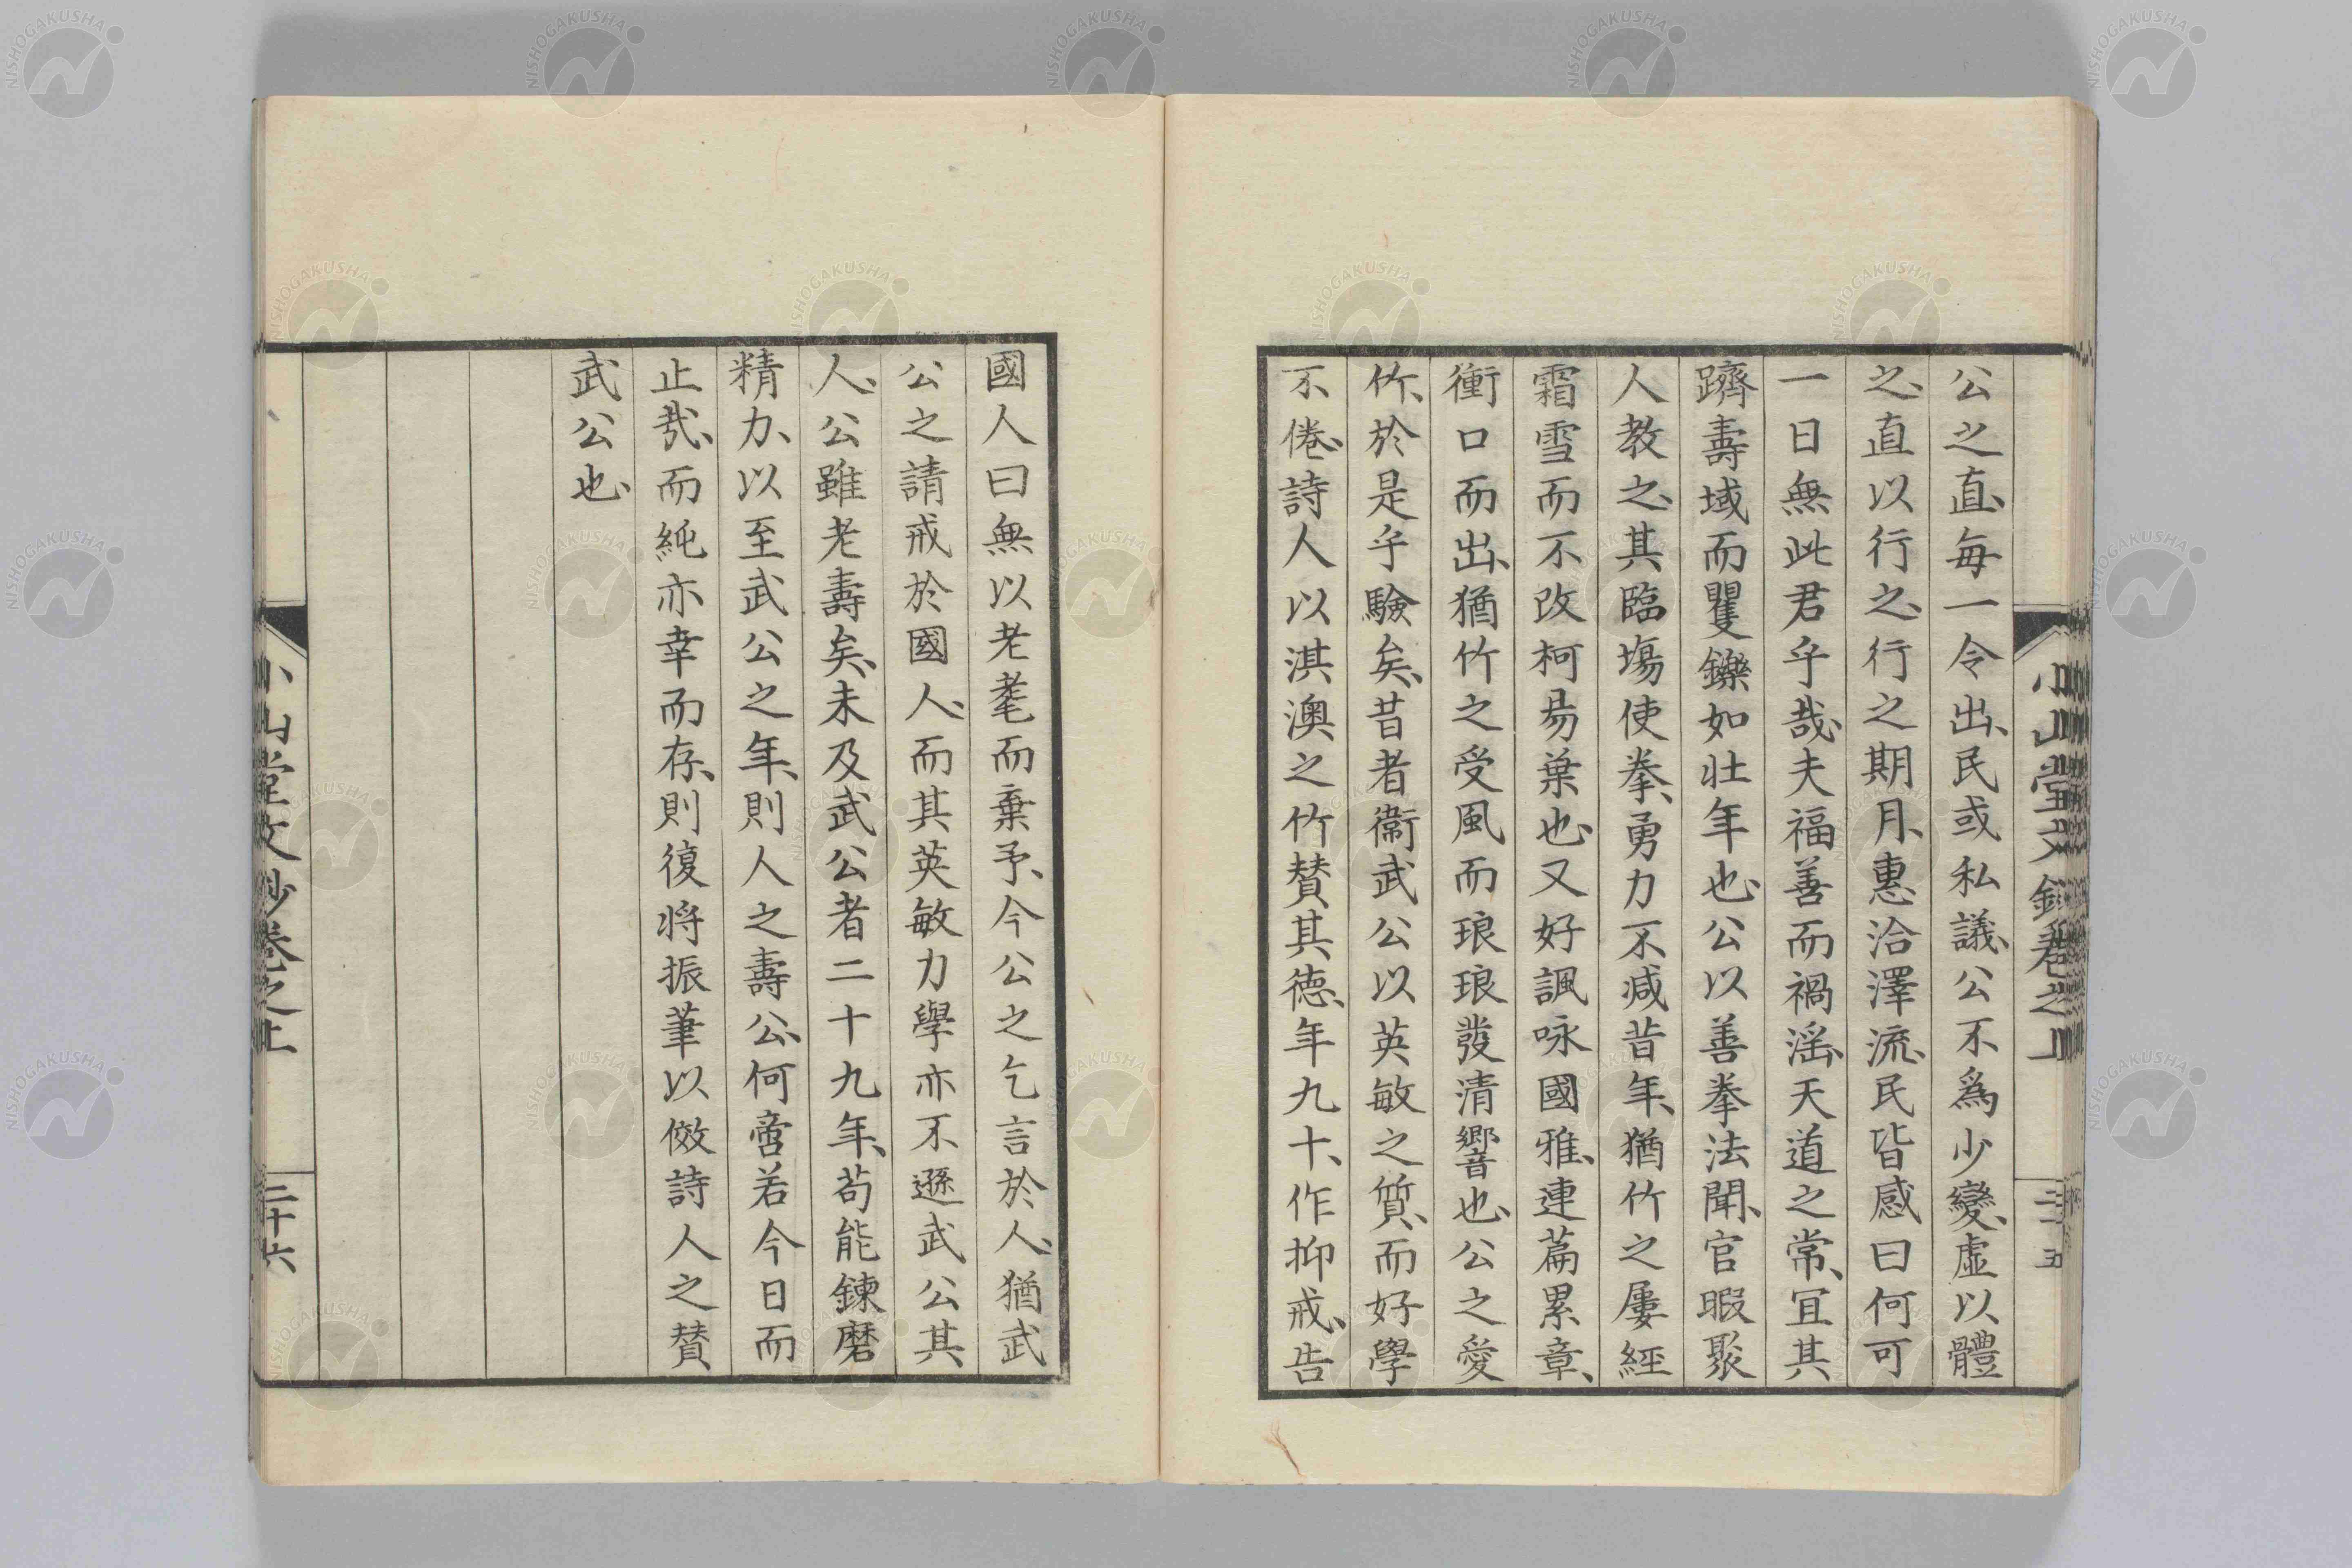 小山堂文鈔卷之上
二十五
公之直、每一令出、民或私議、公不爲少變、虛以體
之、直以行之、行之期月、惠洽澤流、民皆感曰何可
一日無此君乎哉、夫福善而禍淫、天道之常、冝其
躋壽域而矍鑠如壯年也、公以善拳法聞、官暇聚
人教之、其臨場使拳、勇力不减昔年、猶竹之屢經
霜雪而不改柯易葉也、又好諷咏國雅、連篇累章、
衝口而出、猶竹之受風而琅琅發清響也、公之愛
竹、於是乎驗矣、昔者衞武公以英敏之質、而好學
不倦、詩人以淇澳之竹賛其德、年九十、作抑戒、告
國人曰無以老耄而棄予、今公之乞言於人、猶武
公之請戒於國人、而其英敏力學亦不遜武公其
人、公雖老壽矣、未及武公者二十九年、苟能鍊磨
精力、以至武公之年、則人之壽公、何啻若今日而
止哉、而純亦幸而存、則復将振筆以傚詩人之賛
武公也、
小山堂文鈔卷之上
二十六
NISHOGAKUSHA